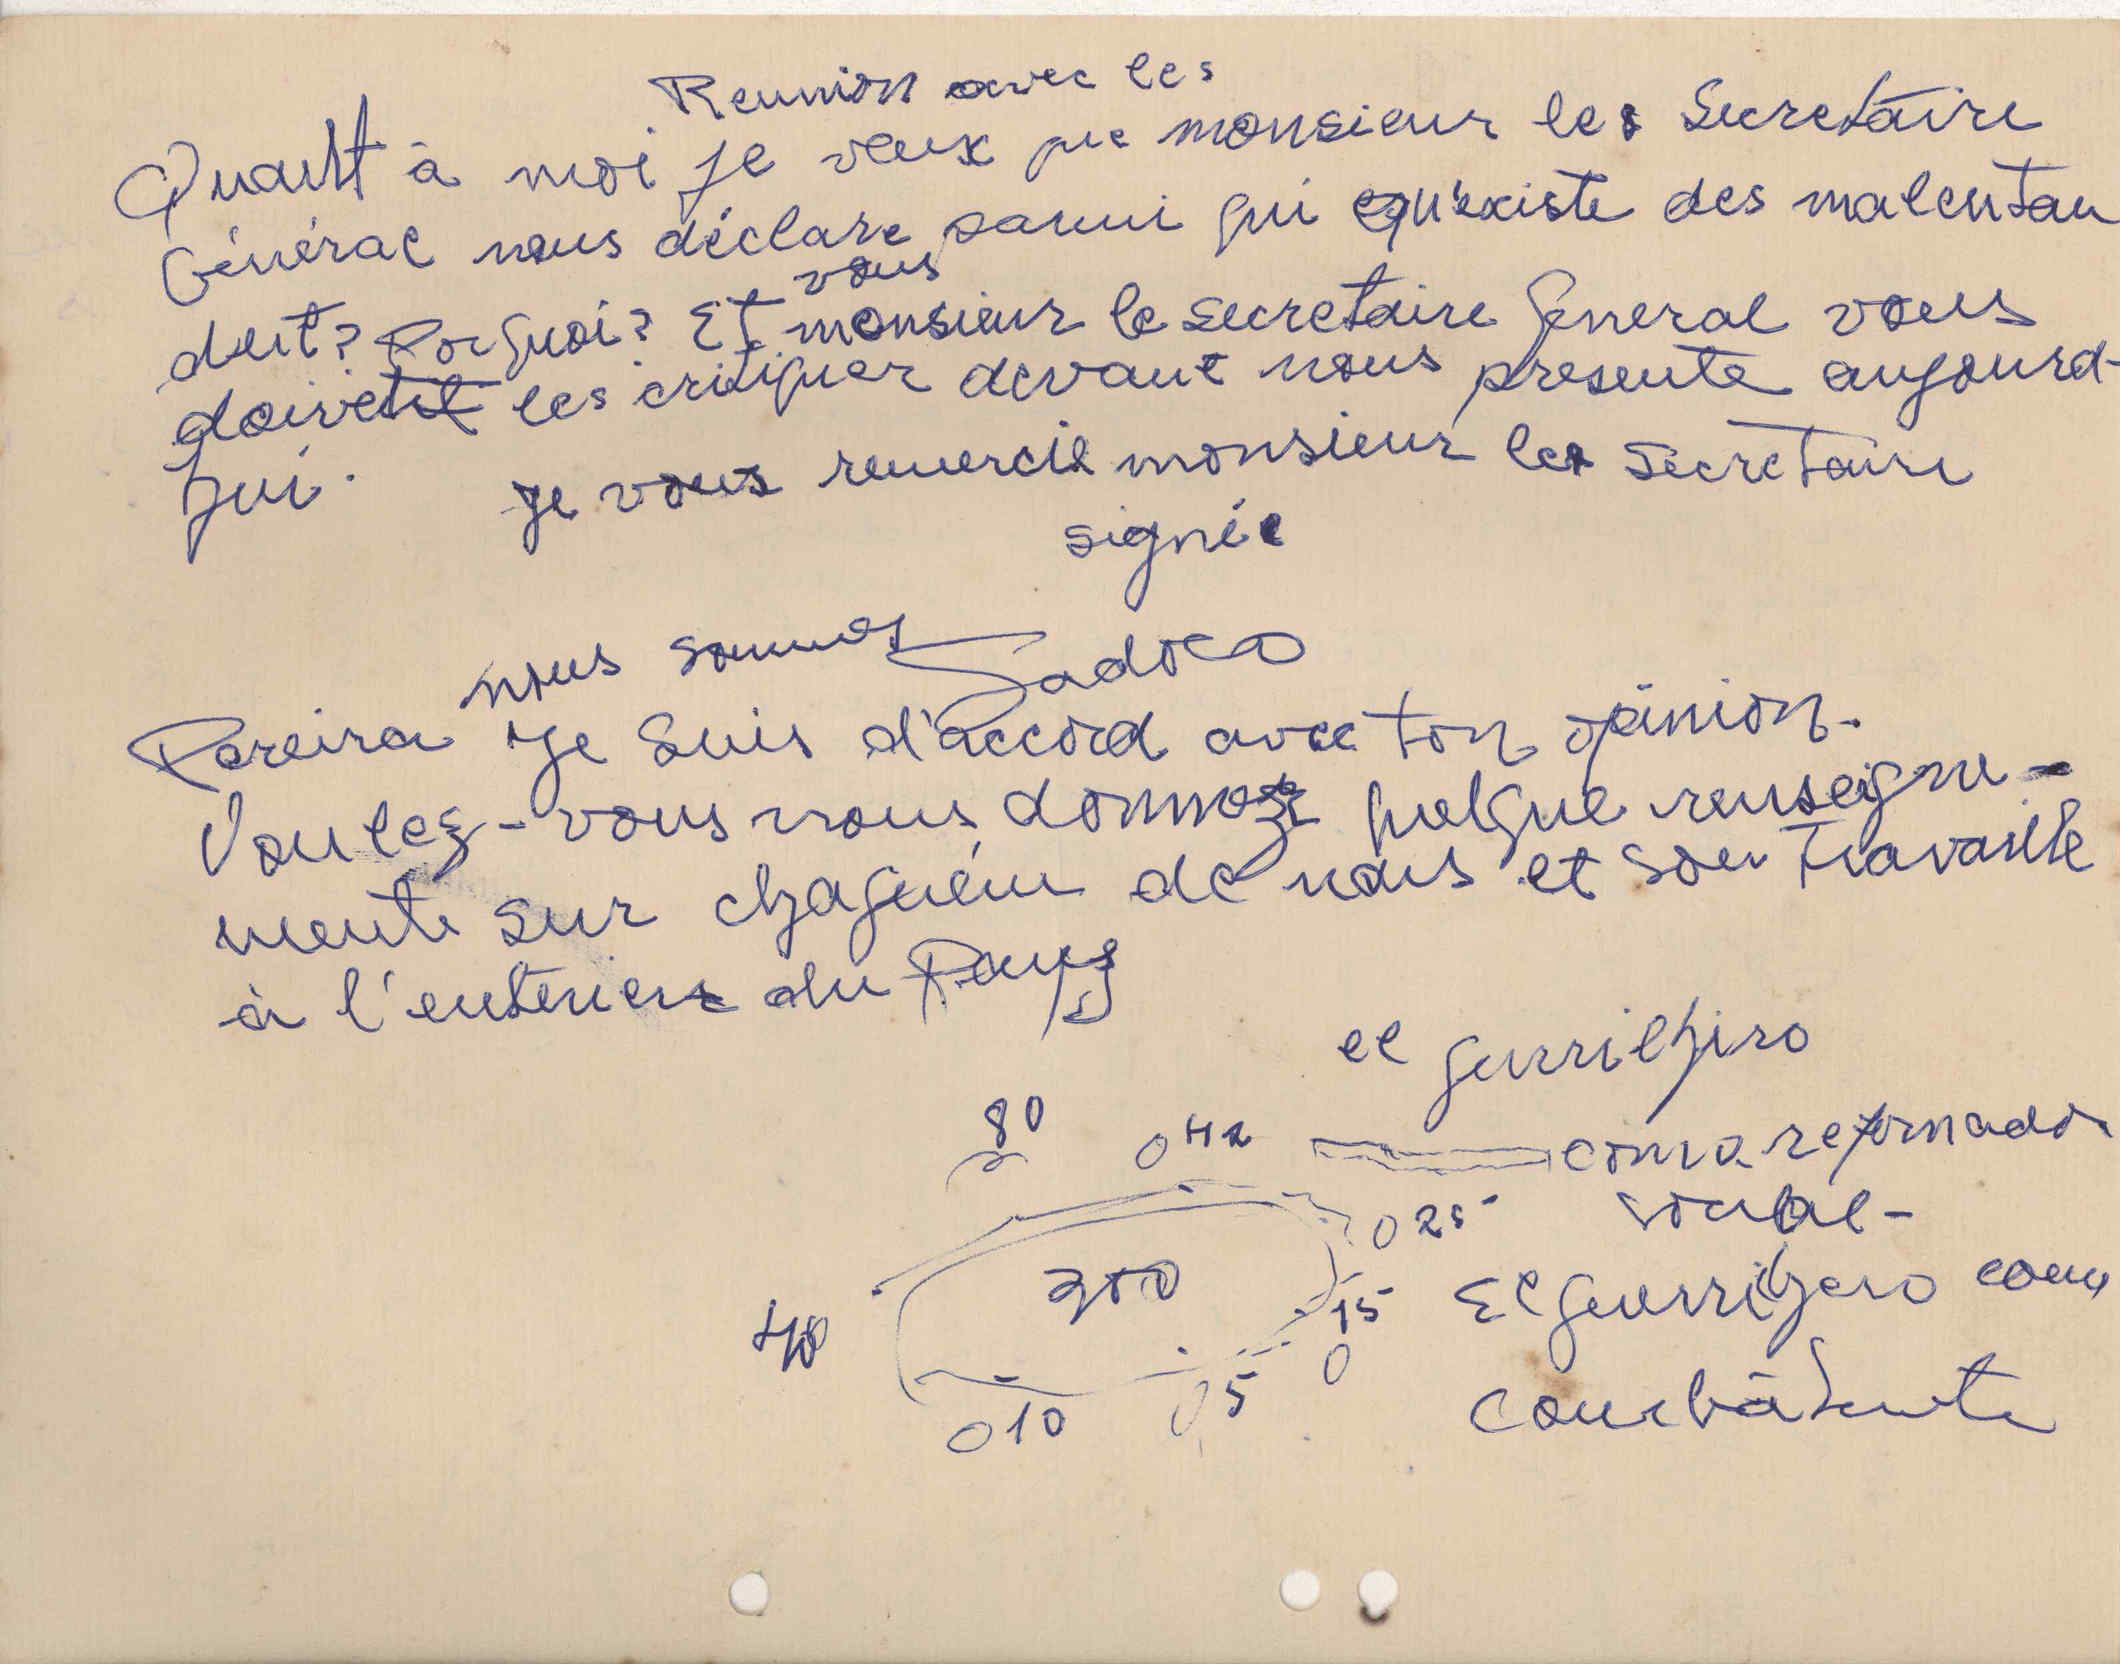 Reunion avec les
Quant à moi je veux que monsieur les Secretaire
Général nous déclare parmi qui qu'existe des malentau
dut? Porquoi? Et vous monsieur le secretaire General vous
doivet les critiquer devant nous presente aujourd-
hui. je vous remercie monsieur les secretaire
signée
Sadoco
nous sommes
Pereira Je Suis d'accord avec ton opinion.
Voulez-vous nous donner quelque renseigne-
mente sur chaquéun de nous et son travaille
à l'enterieur du Pays
el gerrilhiro
80 042 como reformador
025 social-
300
40 15 El guerrilhero como
0
010 05 combatente